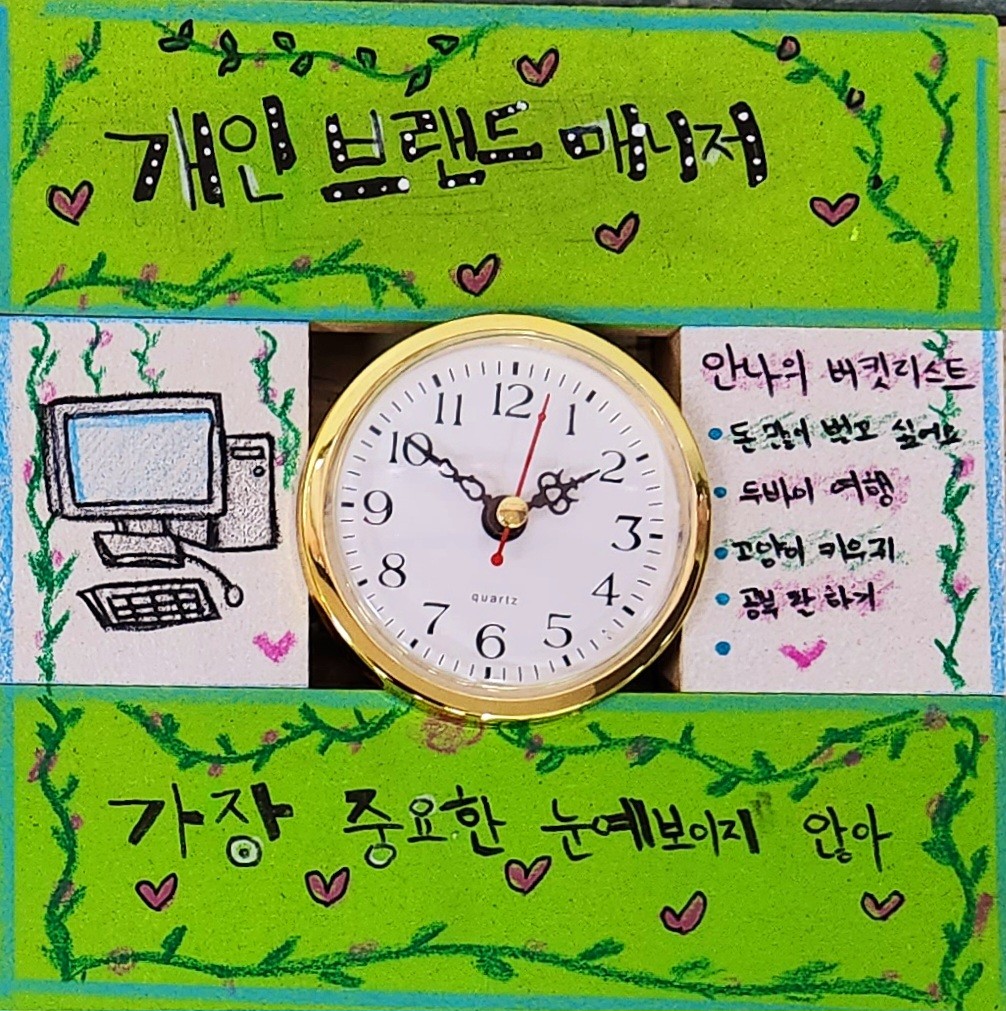 개인 브랜드 매니저
12
11
1
10
2
9
3
8
4
7
5
6
quartz
안나의 버킷리스트
돈 많이 벌고 싶어요
두바이 여행
고양이 키우지
공부 잘 하기
가장 중요한 눈예보이지 않아